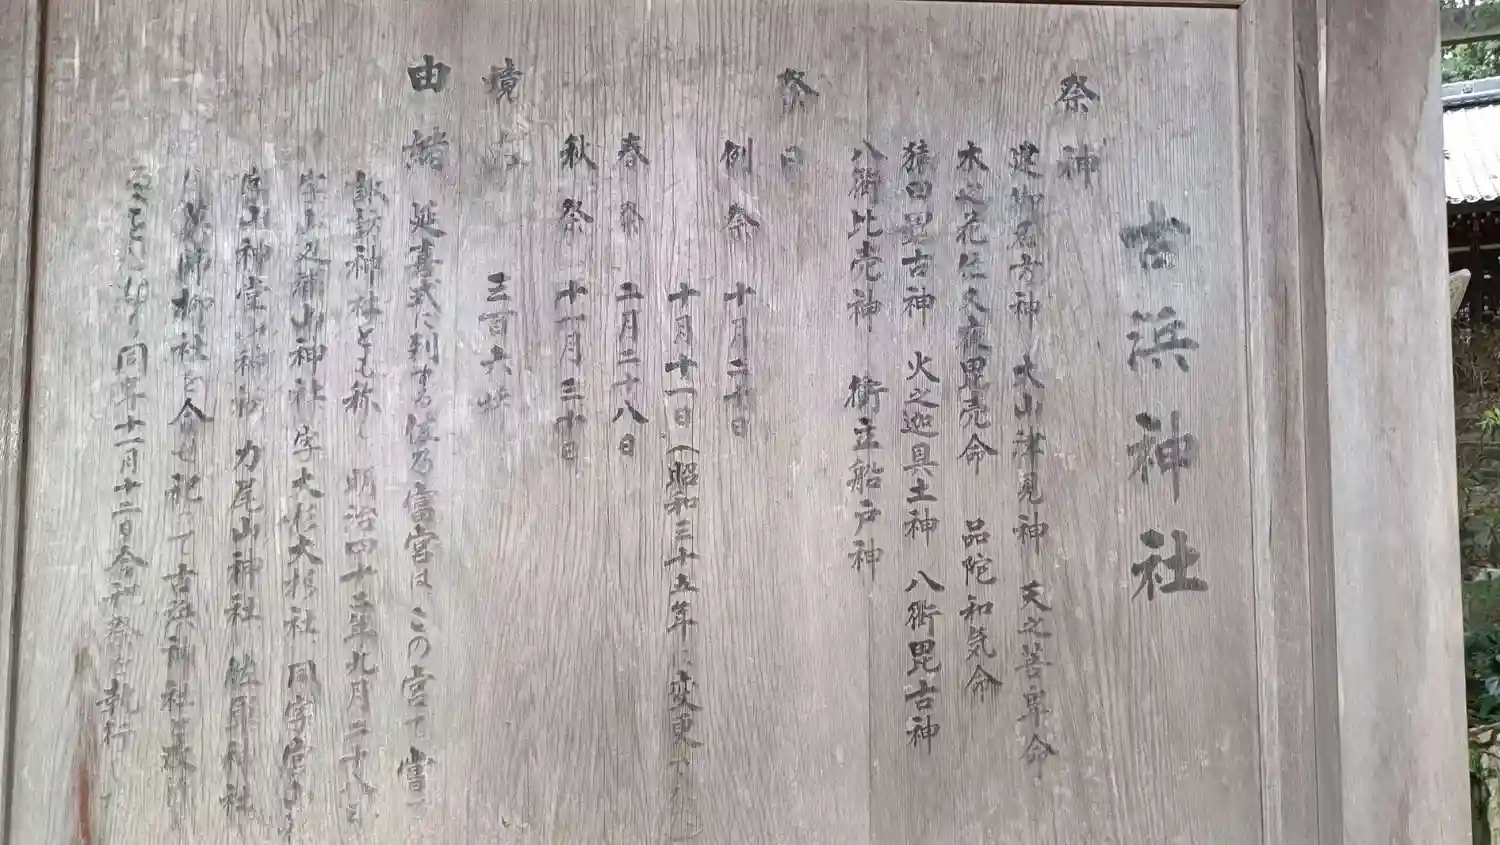 吉浜神社
祭神
建御名方神 大山津見神 天之菩卑命
木之花佐久夜毘売命 品陀和気命
猿田毘古神 火之迦具土神 八衢毘古神
八衢比売神 衢立船戸神
祭日
例祭 十月二十日
十月十一日(昭和三十五年に変更
春祭 二月二十八日
秋祭 十一月三十日
境内 三百六坪
由緒 延喜式に列する佐乃富宮は、この宮で當
諏訪神社とも称し 明治四十二年九月二十八日
山神社 字大杉大杉社 同字宮
山神社 力尾山神社 神社
神社を合せ祀って吉浜神社と
同年十一月十二日合祀祭を執行した